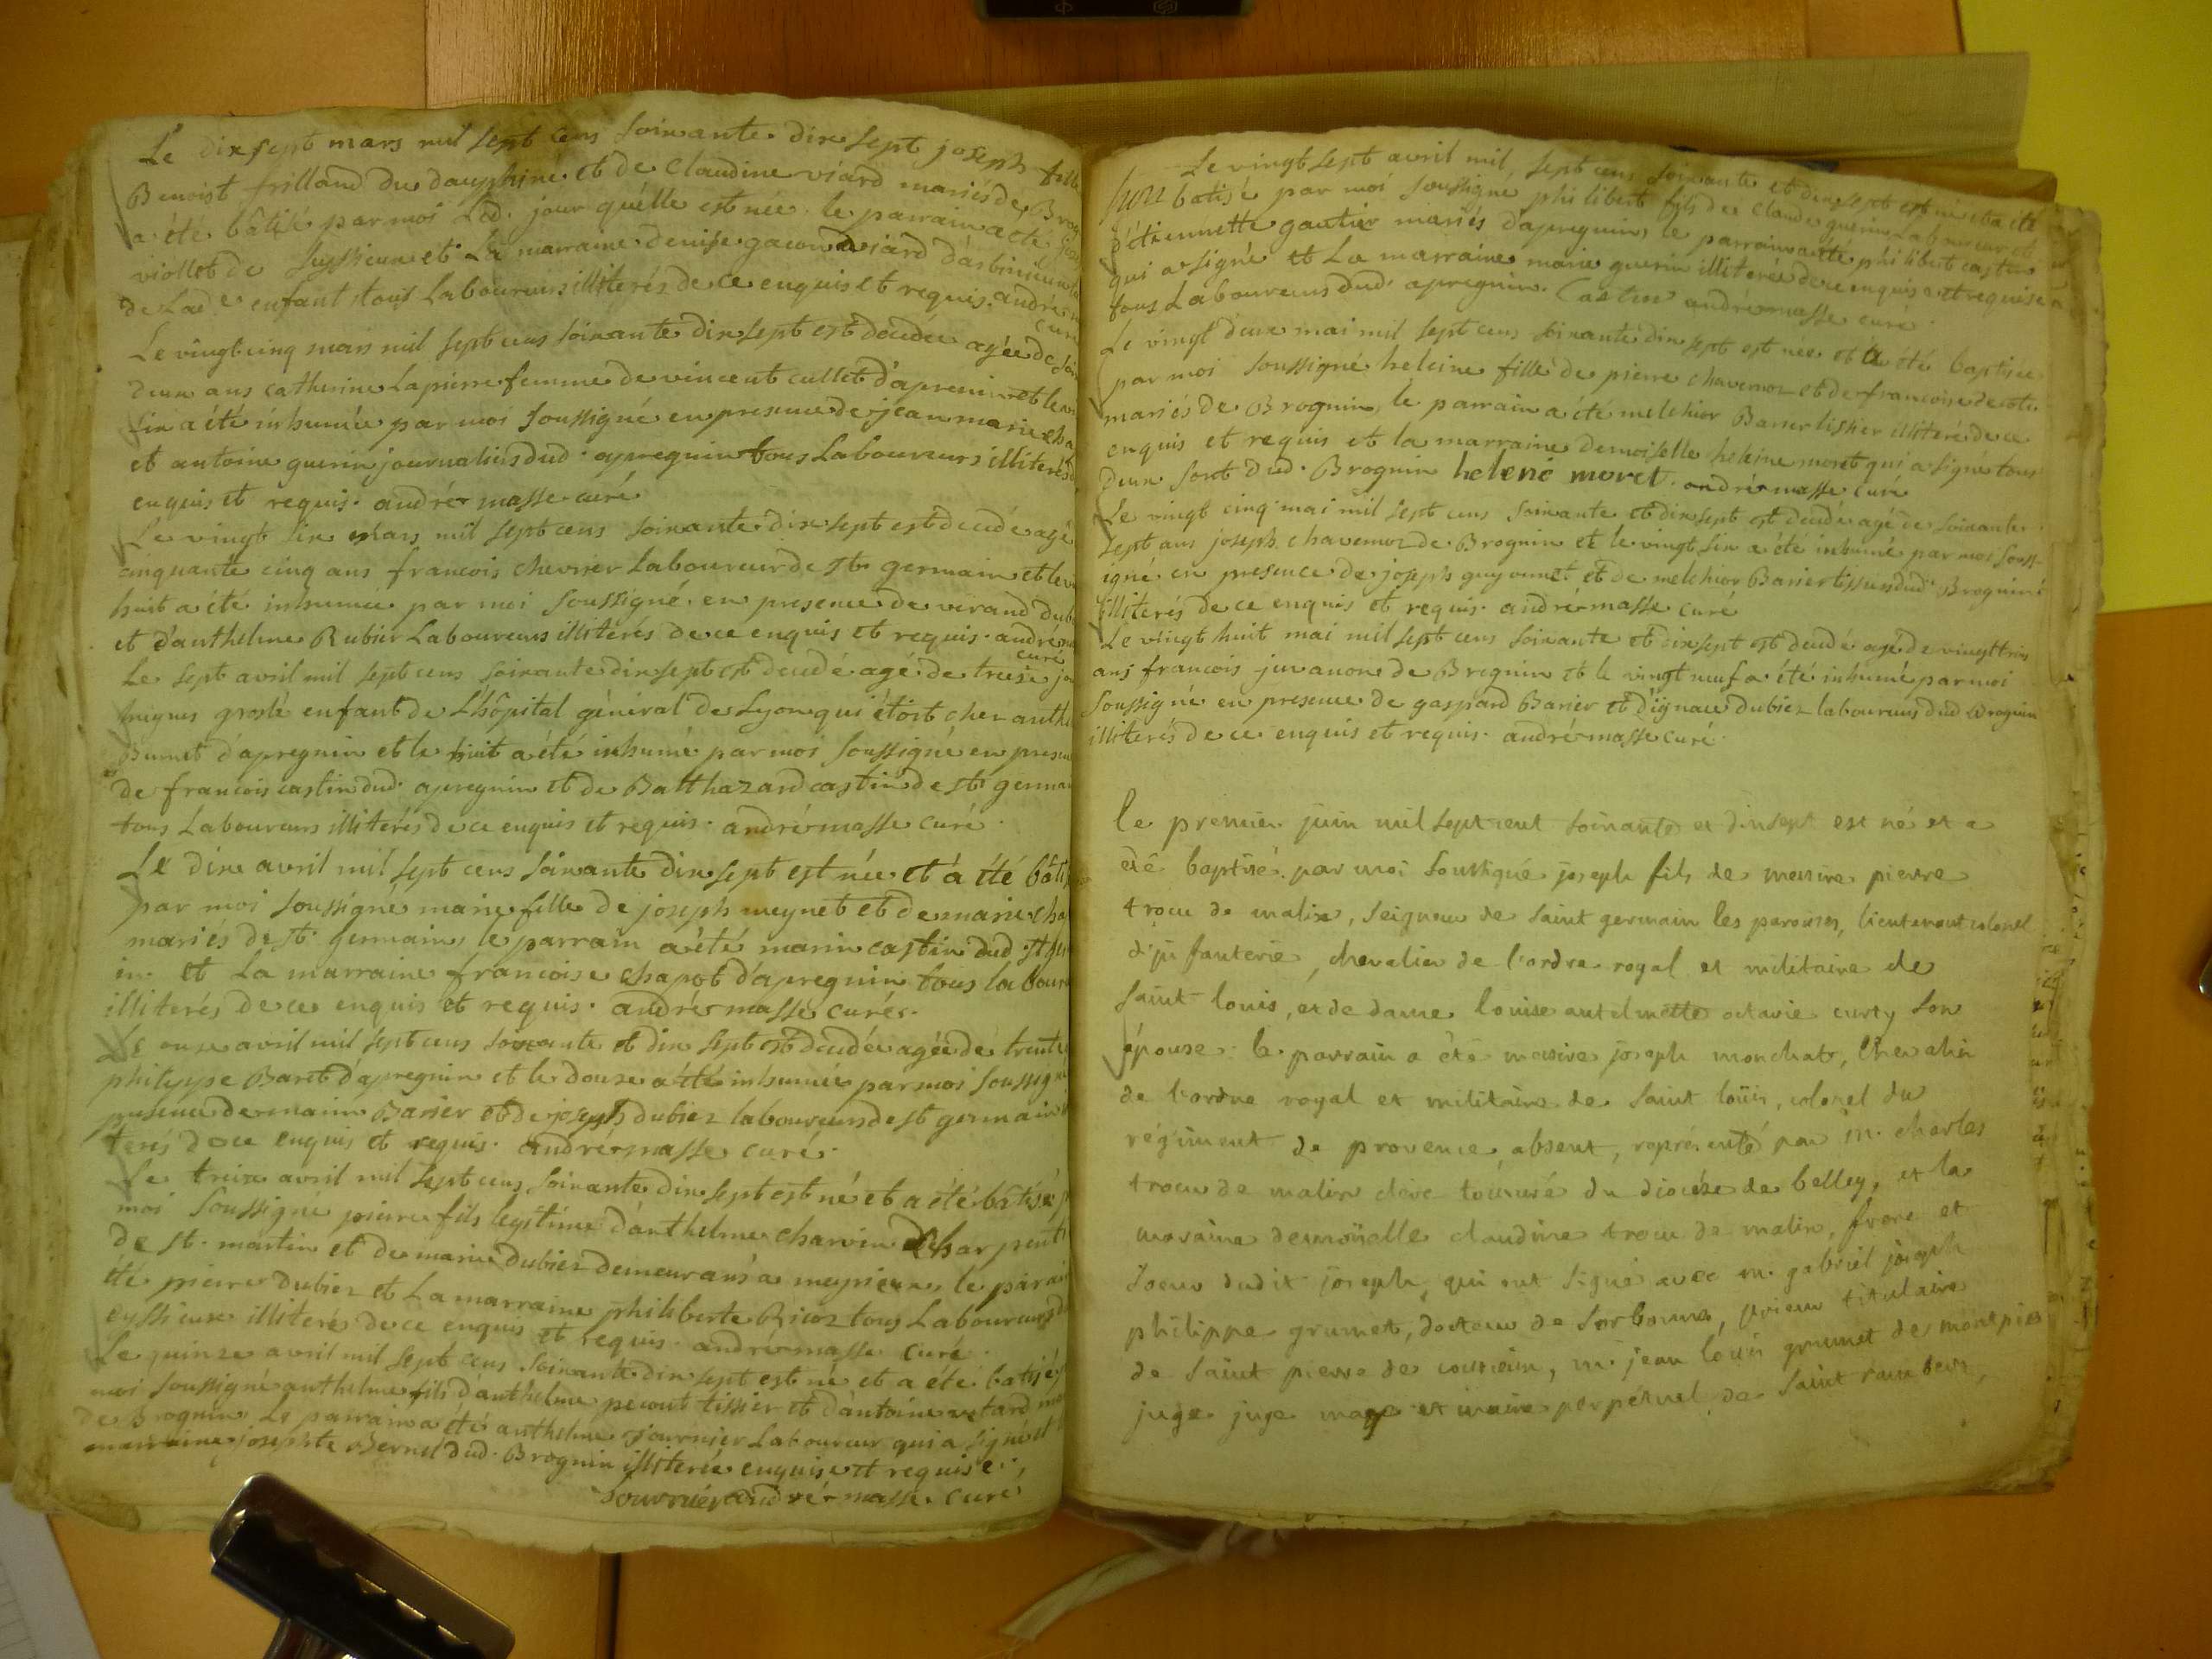 Le dix sept mars mil sept cens soixante dix sept joseph fille
Benoist frilland du dauphiné et de Claudine viard mariés de Brog
a été bâtisé par moi Led. jour qu'elle est née le parrain a été
viollet de suffieux et La marraine denise gacon viard d'arbinieux
de Lad.e enfant tous Laboureurs illiterés de ce enquis et requis. andré
curé
Le vingt cinq mars mil sept cens soixante dix sept est decedée agée de soix
deux ans catherine Lapierre femme de vincent cullet d'apremin et le vi
six a été inhumée par moi soussigné en presence de jean marie cha
et antoine guerin journaliers dud. apregnin tous Laboureurs illiterés
enquis et requis. andré masse curé
Le vingt six mars mil sept cens soixante dix sept est decedé agé
cinquante cinq ans francois chevrier Laboureur de st. germain et le vi
huit a été inhumée par moi soussigné en presence de virand dub
et d'anthelme Rubier Laboureurs illiterés de ce enquis et requis. andré
curé
Le sept avril mil sept cens soixante dix sept est decedé agé de treise jou
hugues groslé enfant de L'hôpital général de Lyon qui étoit chez anth
Burnet d'apregnin et le huit a été inhumé par moi soussigné en presen
de francois castin dud. apregnin et de Balthazard castin de st. germa
tous Laboureurs illiterés de ce enquis et requis. andré masse curé.
Le dix avril mil sept cens soixante dix sept est née et a été bâti
par moi soussigné marie fille de joseph meynet et de marie cha
mariés de st. germain, le parrain a été marin castin dud. st ger
in et La marraine francoise chapot d'apregnin tous labour
illiterés de ce enquis et requis. andré masse curé.
Le onze avril mil sept cens soixante et dix sept est decedée agée de trente
philippe Baret d'apregnin et le douze a été inhumée par moi soussigné
presence de marin Barier et de joseph dubiez laboureurs de st germain
terés de ce enquis et requis. andré masse curé.
Le treize avril mil sept cens soixante dix sept est né et a été bâtisé
moi soussigné pierre fils legitime d'anthelme charvin charpenti
de st. martin et de marie dubiez demeurans a meyrieux, le parai
été pierre dubiez et La marraine philiberte Ricoz tous Laboureurs
eyssieux illiterés de ce enquis et requis. andré masse curé.
Le quinze avril mil sept cens soixante dix sept est né et a été batisé
moi soussigné anthelme fils d'anthelme pecout tissier et d'antoine
de Brognin. Le parrain a été anthelme journier Laboureur qui a signé et
marraine josephte Bernel dud. Brognin illiterée enquise et requise.
andré masse curé
Le vingt sept avril mil sept cens soixante et dix sept est né et a été
batisé par moi soussigné philibert fils de Claude guerin Laboureur et
d'étiennette gautier mariés d'apregnin, le parrain a été philibert castin
qui a signé et La marraine marie guerin illiterée de ce enquise et requise
tous Laboureurs dud. apregnin. Castin andré masse curé.
Le vingt deux mai mil sept cens soixante dix sept est née et a été baptisée
par moi soussigné heleine fille de pierre chavernoz et de francoise
mariés de Brognin, le parrain a été melchior Barier tissier illiteré de ce
enquis et requis et la marraine demoiselle heleine moret qui a signé tous
deux sont dud. Brognin helene moret. andré masse curé
Le vingt cinq mai mil sept cens soixante et dix sept est decedé agé de soixante
sept ans joseph chavernoz de Brognin et le vingt six a été inhumé par moi souss-
igné en presence de joseph guyonnet et de melchior Barier tissier dud. Brognin
illiterés de ce enquis et requis. andré masse curé
Le vingt huit mai mil sept cens soixante et dix sept est decedé agé de vingt trois
ans francois juvanon de Brognin et le vingt neuf a été inhumé par moi
soussigné en presence de gaspard Barier et d'ignace dubiez laboureurs dud Brognin
illiterés de ce enquis et requis. andré masse curé.
le premier juin mil sept cent soixante et dix sept est né et a
été baptisé par moi soussigné joseph fils de messire pierre
trocu de malix, seigneur de saint germain les paroisses, lieutenant colonel
d'jnfanterie, chevalier de l'ordre royal et militaire de
saint louis, et de dame louise antelmette octavie curty son
épouse. le parrain a été messire joseph monchat, chevalier
de l'ordre royal et militaire de saint loüis, colonel du
régiment de provence, absent, représenté par m. charles
trocu de malix clerc tonsuré du diocése de belley, et la
maraine demoiselle claudine trocu de malix, frere et
soeur dudit joseph, qui ont signé avec m. gabriel joseph
philippe grumet, docteur de sorbonne, prieur titulaire
de saint pierre de coursieu, m. jean loüis grumet de montpies
juge juge mage et maire perpétuel de saint rambert,